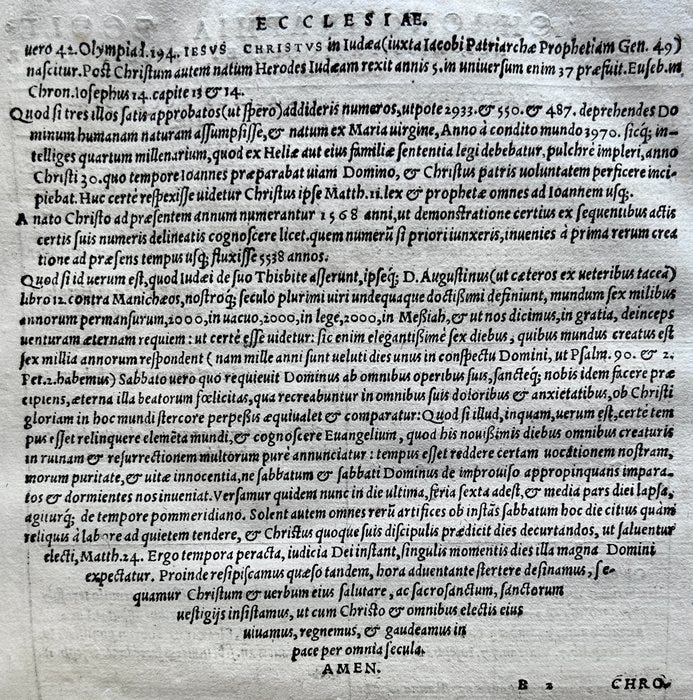 ECCLESIAE.
uero 42. Olympiad. 194. IESVS CHRISTVS in Iudæa (iuxta Iacobi Patriarchæ Prophetiam Gen. 49)
nascitur. Post Christum autem natum Herodes Iudæam rexit annis 5. in uniuersum enim 37 præfuit. Euseb. in
Chron. Iosephus 14. capite 13 & 14.
Quod si tres illos satis approbatos (ut spero) addideris numeros, utpote 2933. & 550. & 487. deprehendes Do
minum humanam naturam assumpsisse, & natum ex Maria uirgine, Anno à condito mundo 3970. sicq; in-
telliges quartum millenarium, quod ex Heliæ aut eius familiæ sententia legi debebatur, pulchrè impleri, anno
Christi 30. quo tempore Ioannes præparabat uiam Domino, & Christus patris uoluntatem perficere inci-
piebat. Huc certè respexisse uidetur Christus ipse Matth. 11. lex & prophetæ omnes ad Ioannem usq;.
A nato Christo ad præsentem annum numerantur 1568 anni, ut demonstratione certius ex sequentibus actis
certis suis numeris delineatis cognoscere licet. quem numerū si priori iunxeris, inuenies à prima rerum crea
tione ad præsens tempus usq; fluxisse 5538 annos.
Quod si id uerum est, quod Iudæi de suo Thisbite asserunt, ipseq; D. Augustinus (ut cæteros ex ueteribus taceā)
libro 12. contra Manichæos, nostroq; seculo plurimi uiri undequaque doctißimi definiunt, mundum sex milibus
annorum permansurum, 2000, in uacuo, 2000, in lege, 2000, in Meßiah, & ut nos dicimus, in gratia, deinceps
uenturam æternam requiem: ut certè esse uidetur: sic enim elegantißimè sex diebus, quibus mundus creatus est
sex millia annorum respondent (nam mille anni sunt ueluti dies unus in conspectu Domini, ut Psalm. 90. & 2.
Pet. 2. habemus) Sabbato uero quo requieuit Dominus ab omnibus operibus suis, sancteq; nobis idem facere præ
cipiens, æterna illa beatorum fœlicitas, qua recreabuntur in omnibus suis doloribus & anxietatibus, ob Christi
gloriam in hoc mundi stercore perpeßis æquiualet & comparatur: Quod si illud, inquam, uerum est, certè tem
pus esset relinquere elemēta mundi, & cognoscere Euangelium, quod his nouißimis diebus omnibus creaturis
in ruinam & resurrectionem multorum purè annunciatur: tempus esset reddere certam uocationem nostram,
morum puritate, & uitæ innocentia, ne sabbatum & sabbati Dominus de improuiso appropinquans impara-
tos & dormientes nos inueniat. Versamur quidem nunc in die ultima, feria sexta adest, & media pars diei lapsa,
agiturq; de tempore pomeridiano. Solent autem omnes rerū artifices ob instās sabbatum hoc die citius quàm
reliquis à labore ad quietem tendere, & Christus quoque suis discipulis prædicit dies decurtandos, ut saluentur
electi, Matth. 24. Ergo tempora peracta, iudicia Dei instant, singulis momentis dies illa magna Domini
expectatur. Proinde resipiscamus quæso tandem, hora aduentante stertere desinamus, se-
quamur Christum & uerbum eius salutare, ac sacrosanctum, sanctorum
uestigijs insistamus, ut cum Christo & omnibus electis eius
uiuamus, regnemus, & gaudeamus in
pace per omnia secula.
AMEN.
B 2 CHRO-